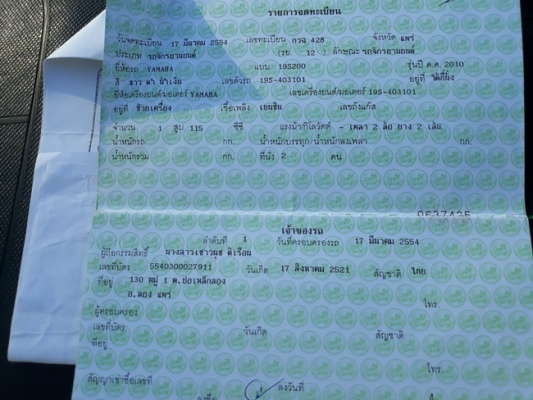 รายการจดทะเบียน
วันจดทะเบียน 17 มีนาคม 2554 เลขทะเบียน กวฉ 428 จังหวัด แพร่
ประเภท รถจักรยานยนต์ (รย. 12 ) ลักษณะ รถจักรยานยนต์
ยี่ห้อรถ YAMAHA แบบ 19S200 รุ่นปี ค.ศ. 2010
สี ขาว ดำ น้ำเงิน เลขตัวรถ 19S-403101 อยู่ที่
ยี่ห้อเครื่องยนต์/มอเตอร์ YAMAHA เลขเครื่องยนต์/มอเตอร์ 19S-403101
อยู่ที่ ซ้ายเครื่อง เชื้อเพลิง เบนซิน เลขถังแก๊ส
จำนวน 1 สูบ 115 ซีซี แรงม้า/กิโลวัตต์ - เพลา 2 ล้อ ยาง 2 เส้น
น้ำหนักรถ กก. น้ำหนักบรรทุก/น้ำหนักลงเพลา กก.
น้ำหนักรวม กก. ที่นั่ง 2 คน
เจ้าของรถ
ลำดับที่ 1 วันที่ครอบครองรถ 17 มีนาคม 2554
ผู้ถือกรรมสิทธิ์
เลขที่บัตร 5540300027911 วันเกิด 17 สิงหาคม 2521 สัญชาติ ไทย
ที่อยู่ 130 หมู่ 1 ต.บ่อเหล็กลอง
อ.ลอง แพร่ โทร.
ผู้ครอบครอง
เลขที่บัตร วันเกิด สัญชาติ
ที่อยู่
โทร.
สัญญาเช่าซื้อเลขที่ ลงวันที่